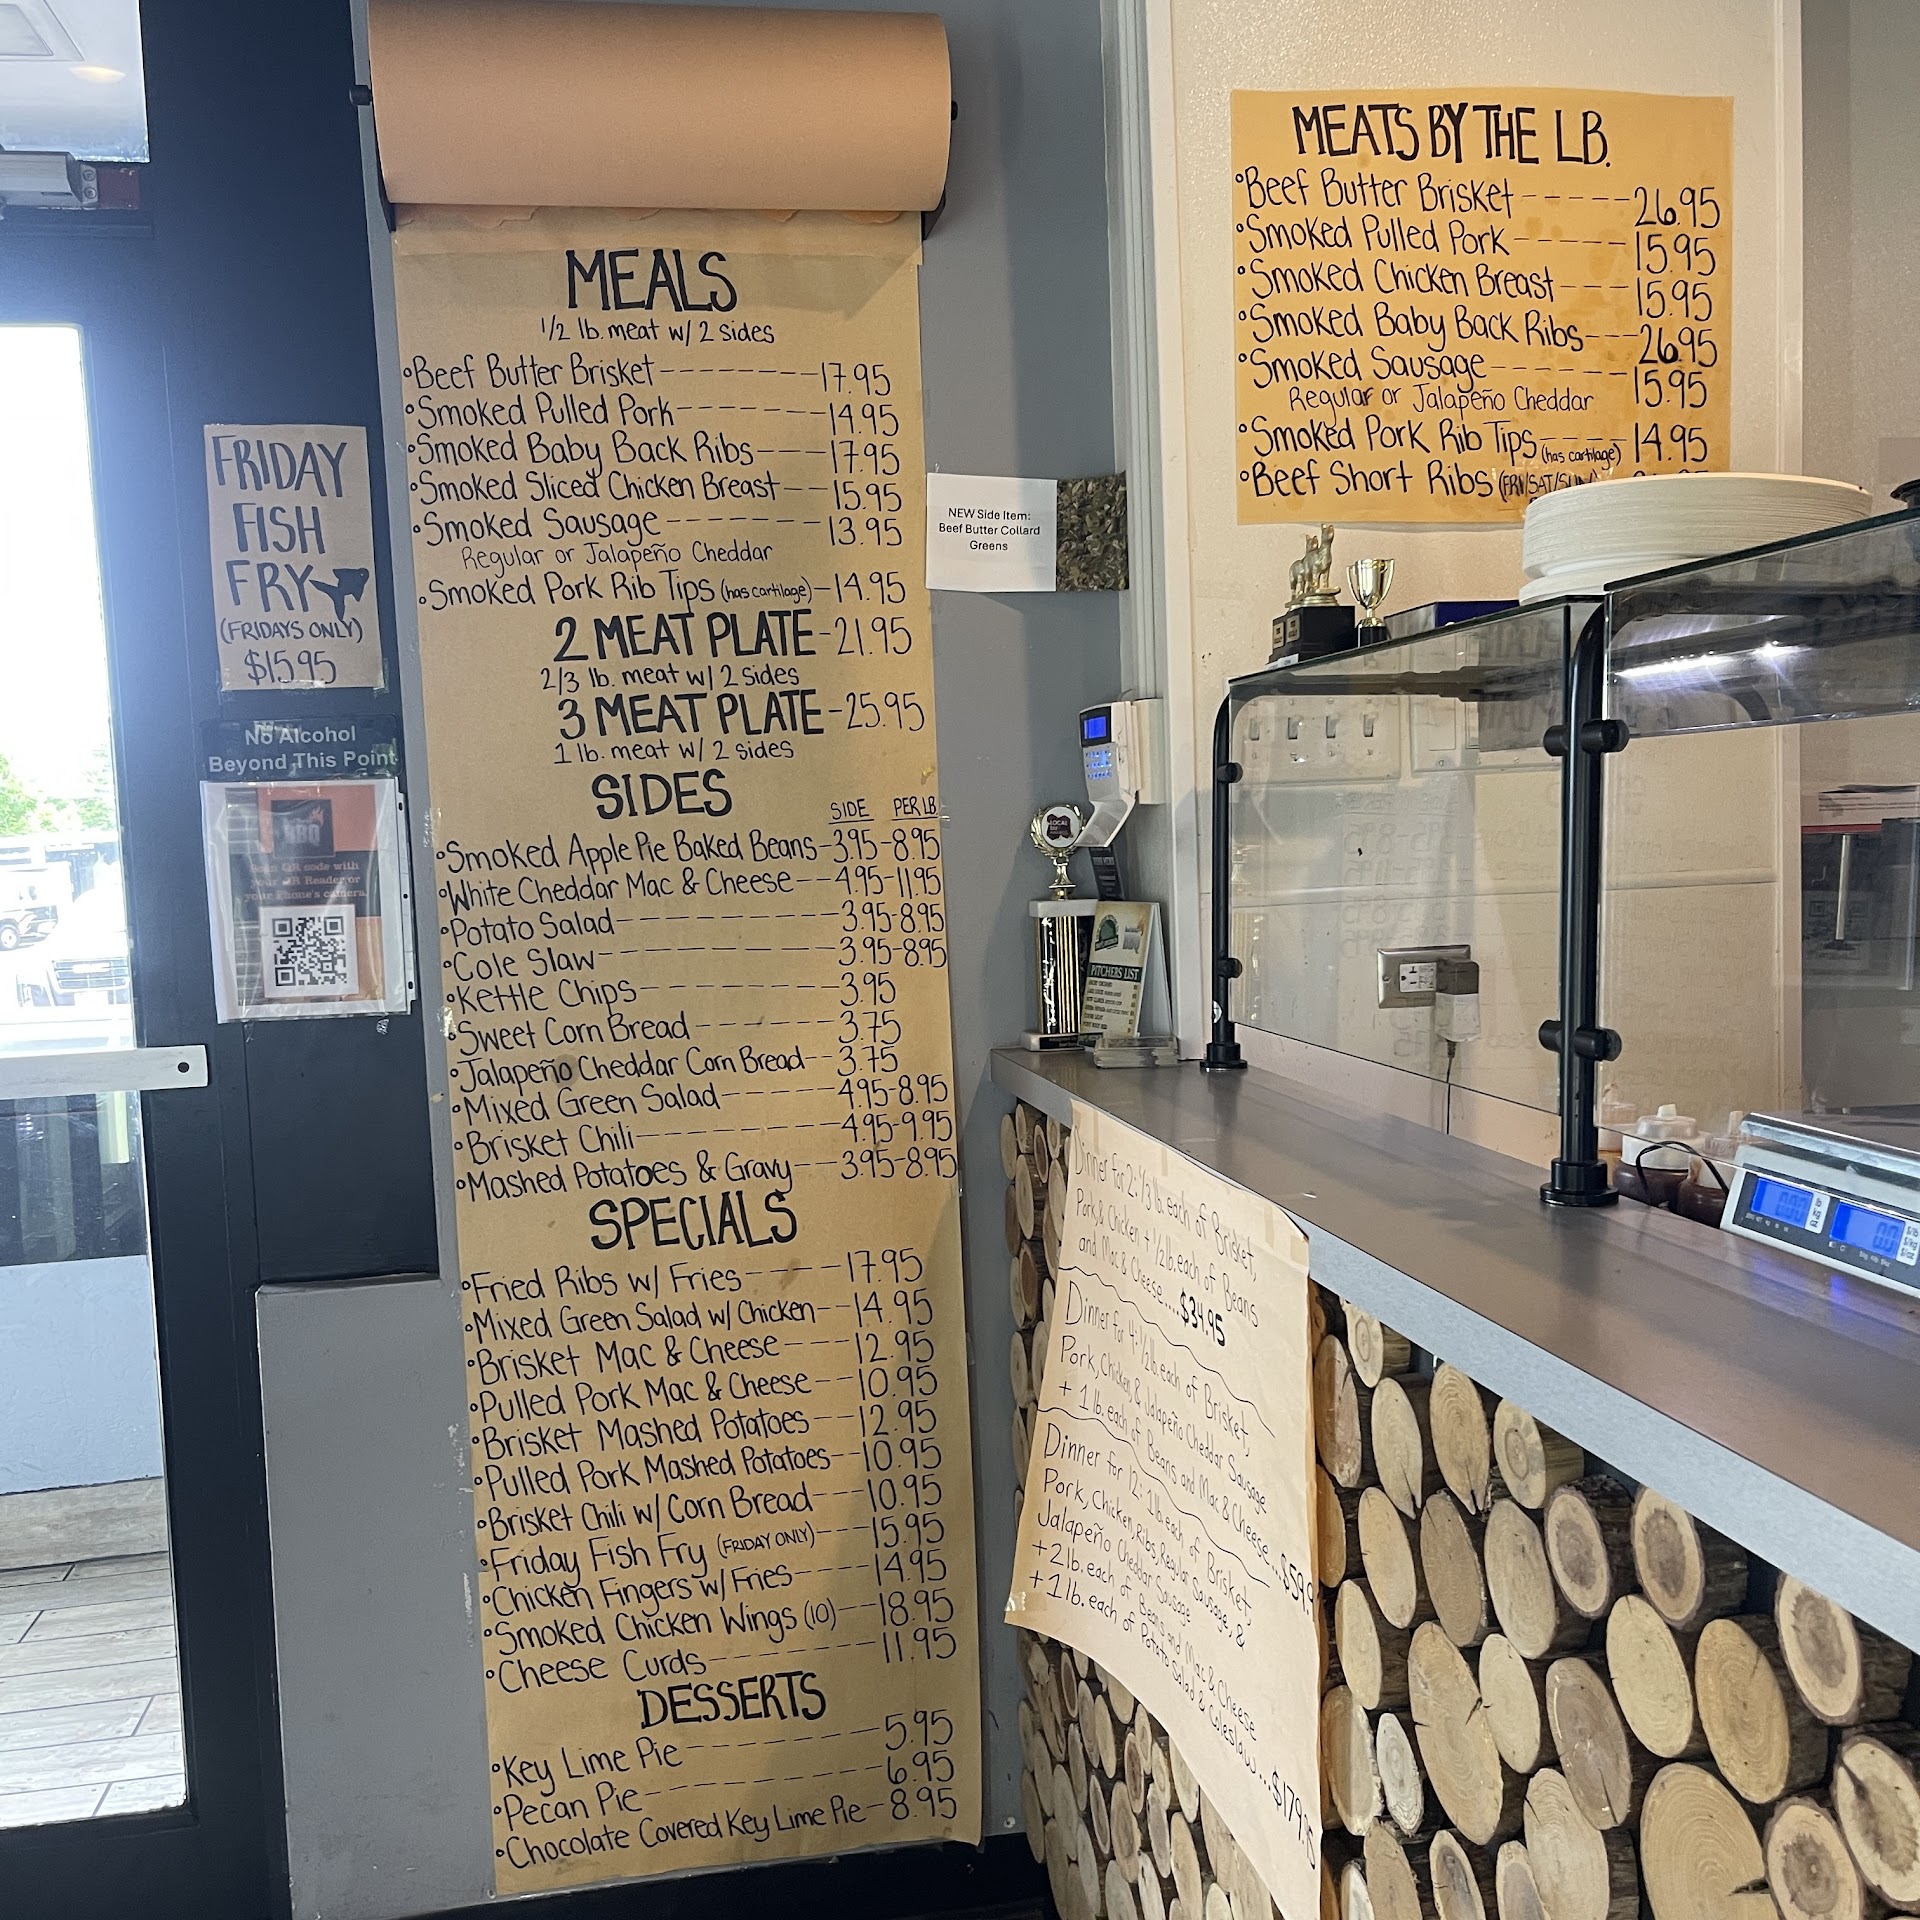 FRIDAY
FISH
FRY
(FRIDAYS ONLY)
$15.95
No Alcohol
Beyond This Point
BBQ
Scan QR code with
your QR Reader or
your Phone's camera.
MEALS
1/2 lb. meat w/ 2 sides
°Beef Butter Brisket--------17.95
°Smoked Pulled Pork-------14.95
°Smoked Baby Back Ribs---17.95
°Smoked Sliced Chicken Breast--15.95
°Smoked Sausage-------13.95
Regular or Jalapeño Cheddar
°Smoked Pork Rib Tips (has cartilage)-14.95
2 MEAT PLATE-21.95
2/3 lb. meat w/ 2 sides
3 MEAT PLATE-25.95
1 lb. meat w/ 2 sides
SIDES
SIDE PER LB
°Smoked Apple Pie Baked Beans-3.95-8.95
°White Cheddar Mac & Cheese--4.95-11.95
°Potato Salad----------3.95-8.95
°Cole Slaw-----------3.95-8.95
°Kettle Chips---------3.95
°Sweet Corn Bread------3.75
°Jalapeño Cheddar Corn Bread--3.75
°Mixed Green Salad-----4.95-8.95
°Brisket Chili---------4.95-9.95
°Mashed Potatoes & Gravy--3.95-8.95
SPECIALS
°Fried Ribs w/ Fries----17.95
°Mixed Green Salad w/ Chicken--14.95
°Brisket Mac & Cheese---12.95
°Pulled Pork Mac & Cheese--10.95
°Brisket Mashed Potatoes--12.95
°Pulled Pork Mashed Potatoes--10.95
°Brisket Chili w/ Corn Bread---10.95
°Friday Fish Fry (FRIDAY ONLY)---15.95
°Chicken Fingers w/ Fries----14.95
°Smoked Chicken Wings (10)--18.95
°Cheese Curds--------11.95
DESSERTS
°Key Lime Pie--------5.95
°Pecan Pie----------6.95
°Chocolate Covered Key Lime Pie-8.95
NEW Side Item:
Beef Butter Collard
Greens
MEATS BY THE LB.
°Beef Butter Brisket-----26.95
°Smoked Pulled Pork-----15.95
°Smoked Chicken Breast---15.95
°Smoked Baby Back Ribs---26.95
°Smoked Sausage------15.95
Regular or Jalapeño Cheddar
°Smoked Pork Rib Tips (has cartilage)----14.95
°Beef Short Ribs (FRI/SAT/SUN)
LOCAL
PITCHERS LIST
Dinner for 2: 1/3 lb. each of Brisket,
Pork, & Chicken + 1/2 lb. each of Beans
and Mac & Cheese....$34.95
Dinner for 4: 1/2 lb. each of Brisket,
Pork, Chicken, & Jalapeño Cheddar Sausage
+ 1 lb. each of Beans and Mac & Cheese...$59.9
Dinner for 12: 1 lb. each of Brisket,
Pork, Chicken, Ribs, Regular Sausage, &
Jalapeño Cheddar Sausage
+ 2 lb. each of Beans and Mac & Cheese
+ 1 lb. each of Potato Salad & Coleslaw...$179.95